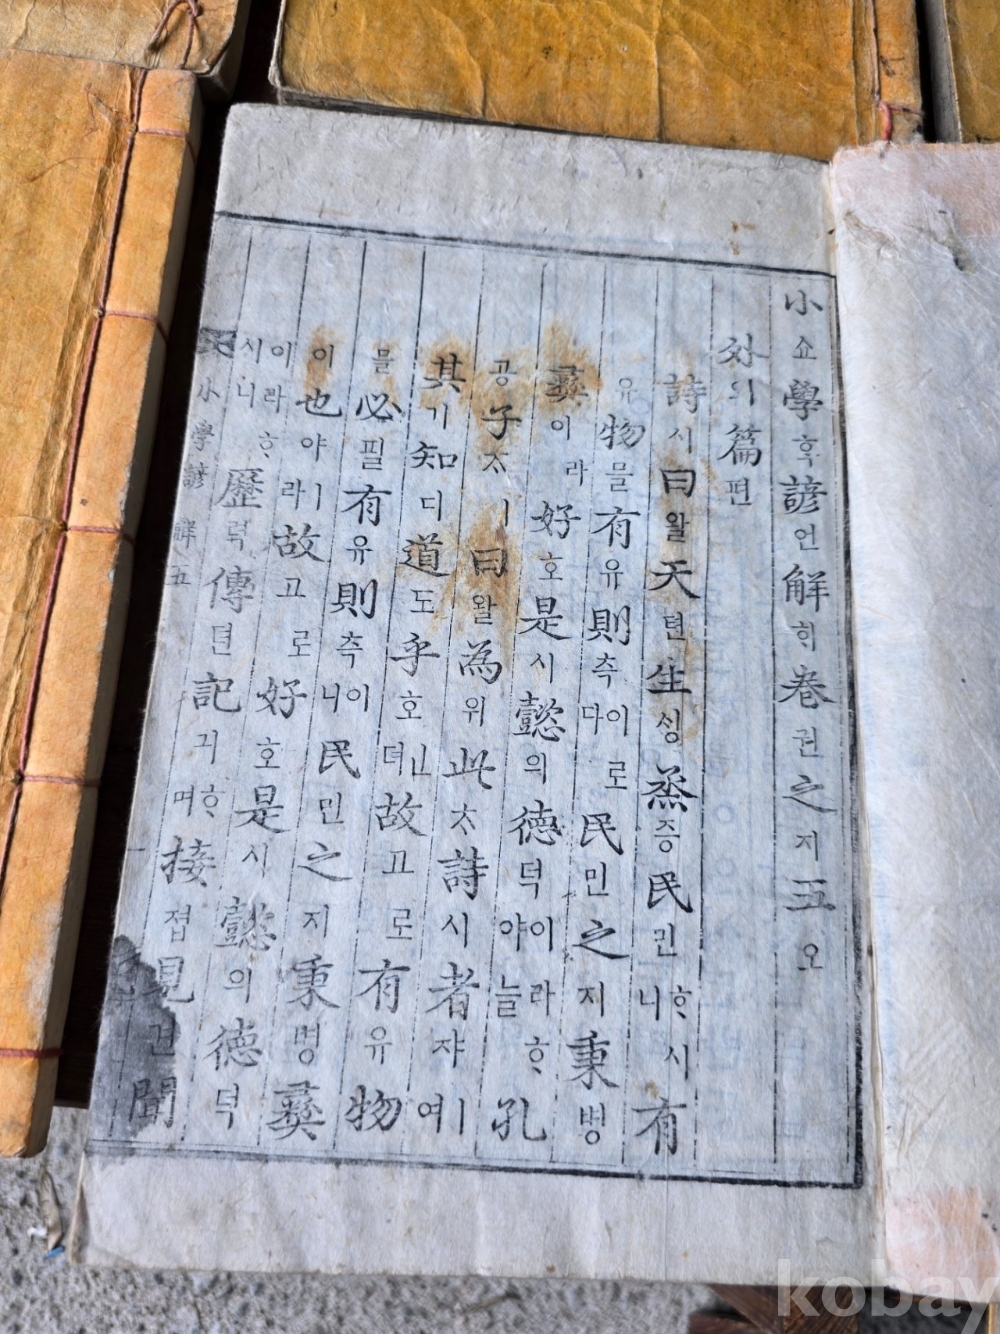 小쇼學ᄒᆞᆨ諺언解ᄒᆡ卷권之지五오
外외篇편
詩시曰왈天텬生ᄉᆡᆼ烝증民민ᄒᆞ시니有
유物믈有유則측이로다民민之지秉병
彝이라好호是시懿의德덕이라ᄒᆞ야늘孔
공子ᄌᆞㅣ曰왈為위此ᄎᆞ詩시者쟈ㅣ여
其기知디道도乎호ᅟᅵᆫ뎌故고로有유物
믈必필有유則측이니民민之지秉병彝
이也야ㅣ라故고로好호是시懿의德덕
이라ᄒᆞ시니歷력傳뎐記긔ᄒᆞ며接졉見견聞
小學諺解五
kobay